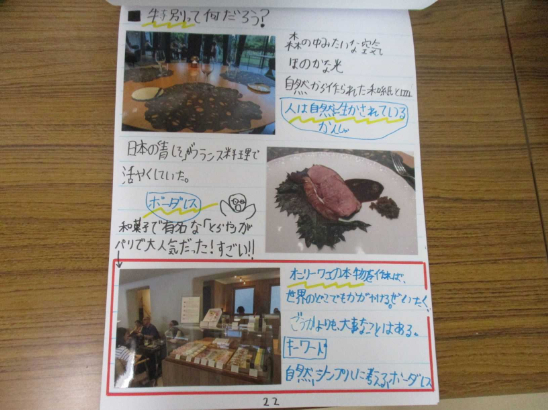 ■特別って何だろう?
森の中みたいな空間で
ほのかな光
自然から作られた和紙と皿
人は自然に生かされている
かんしゃ
日本の青じそがフランス料理で
活やくしていた。
ボーダレス
和菓子で有名な「とらや」が
パリで大人気だった!すごい!!
オンリーワンの本物を作れば、
世界のどこでもかがやける。ぜいたく、
ごうかよりも、大事なことはある。
キーワード
自然、シンプルに考える、ボーダレス
22